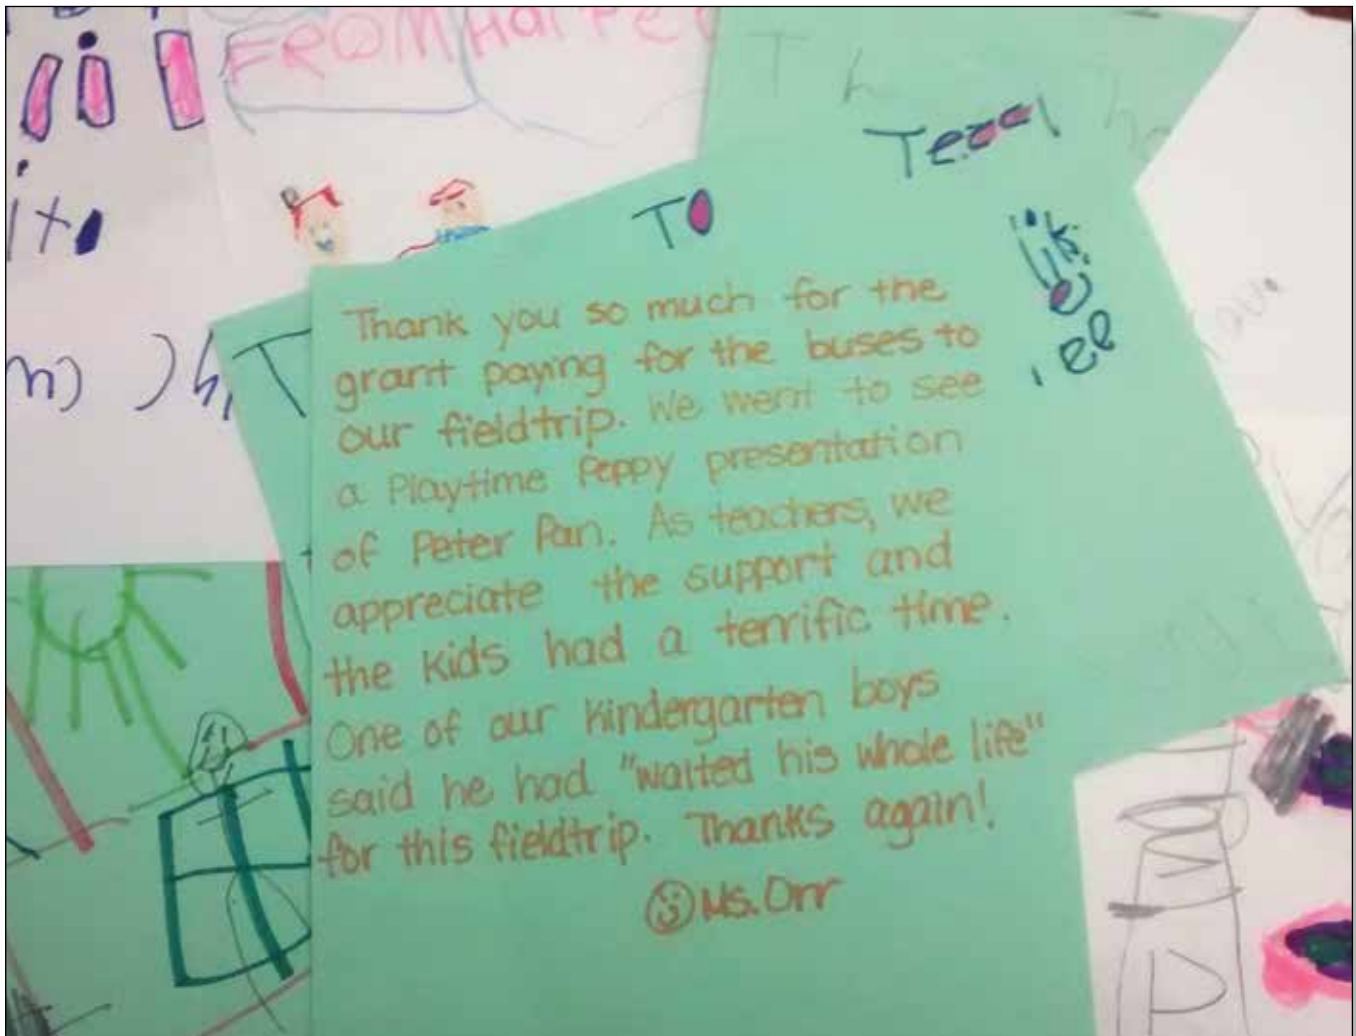 FROM
TO
Thank you so much for the
grant paying for the buses to
our fieldtrip. We went to see
a Playtime Peppy presentation
of Peter Pan. As teachers, we
appreciate the support and
the kids had a terrific time.
One of our kindergarten boys
said he had "waited his whole life"
for this fieldtrip. Thanks again!
Ms. Orr